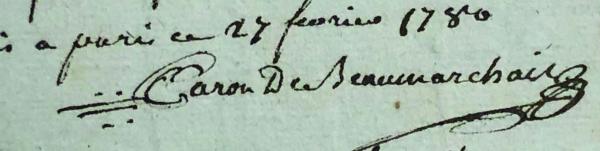 a paris ce 27 fevrier 1780
Caron De Beaumarchais